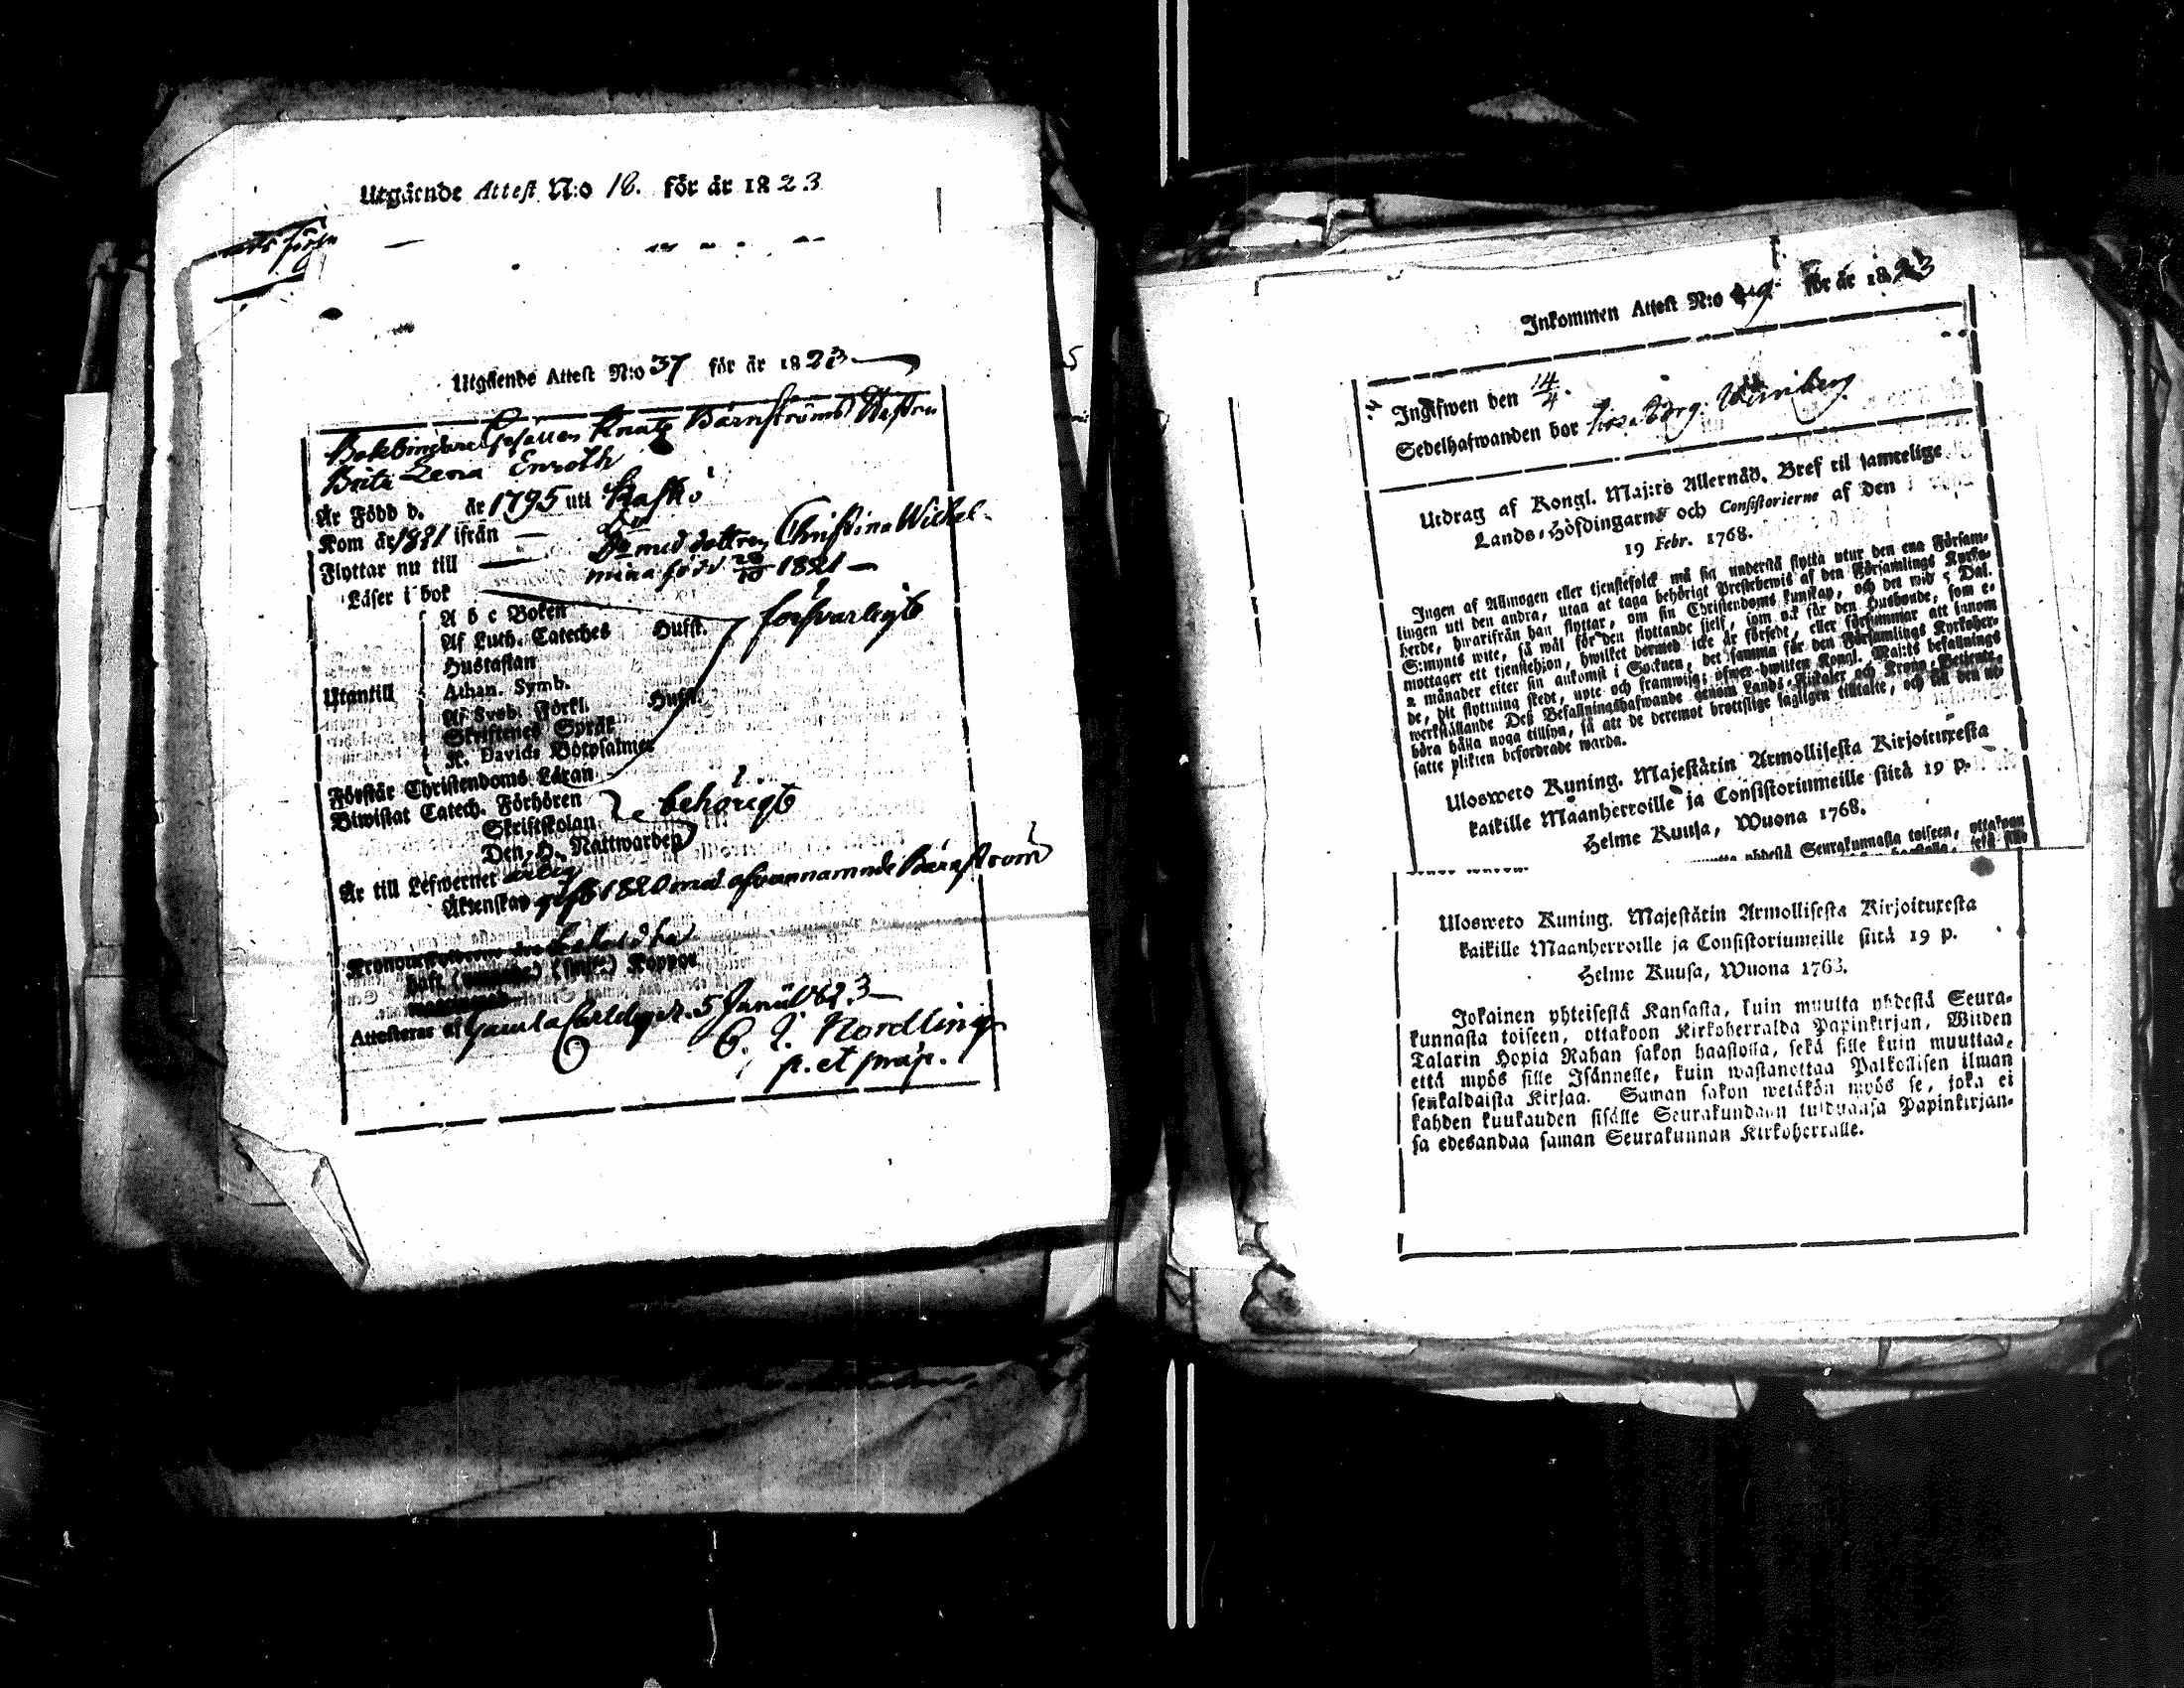 Utgående Attest N:o 18. för år 1823
Utgående Attest N:o 37 för år 1823
Bokbindare Gesällen Knut Bärnströms Hustru
Brita Lena Enroth
Är Född d. år 1795 uti Kaskö
Kom år 1821 ifrån Do
Flyttar nu till Do med dottren Christina Wilhel-
mina född 28/10 1821
Läser i bok
A b c Boken
Af Luth. Cateches Hust. försvarligt
Hustaflan
Utantill Athan. Symb.
Af Sveb. Förkl. Hust.
Skriftenes Språk
K. Davids Botpsalmer
Förstår Christendoms Läran
Biwistat Catech. Förhören behörigt
Skriftskolan
Den H. Nattwarden
Är till Lefwernet ärlig
Äktenskap gift 1820 med ofvannamnde Bärnström
haft Koppor
Attesteras af Gamla Carleby d. 5 Junii 1823
C. J. Nordling
p. et præp.
Inkommen Attest N:o för år 1823
Ingifwen den 14/4.
Sedelhafwanden bor
Utdrag af Kongl. Maj:ts Allernåd. Bref til samtelige
Lands-Höfdingarne och Consistorierne af den
19 Febr. 1768.
Ingen af Allmogen eller tjenstefolck må sig understå flytta utur den ena Försam-
lingen uti den andra, utan at taga behörigt Prestebewis af den Församlings Kyrko-
herde, hwarifrån han flyttar, om sin Christendoms kunskap, och det wid 5 Dal.
S:mynts wite, så wäl för den flyttande sielf, som ock för den Husbonde, som e-
mottager ett tjenstehjon, hwilket dermed icke är försedt, eller försummar att innom
2 månader efter sin ankomst i Socknen, det samma för den Församlings Kyrkoher-
de, dit flyttning skedt, upte och framwisa; öfwer hwilken Kongl. Maj:ts befallnings
werkställande Deß Befallningshafwande genom Lands-Fiskaler och Krono-Betjente,
böra hålla noga tillsyn, så att de deremot brottslige lagligen tilltalte, och till den ut-
satte plikten befordrade warda.
Ulosweto Kuning. Majestätin Armollisesta Kirjoituxesta
kaikille Maanherroille ja Consistoriumeille siitä 19 p.
Helme Kuusa, Wuona 1768.
yhdestä Seurakunnasta toiseen, ottakoon
Ulosweto Kuning. Majestätin Armollisesta Kirjoituxesta
kaikille Maanherroille ja Consistoriumeille siitä 19 p.
Helme Kuusa, Wuona 1768.
Jokainen yhteisestä Kansasta, kuin muutta yhdestä Seura-
kunnasta toiseen, ottakoon Kirkoherralda Papinkirjan, Wiiden
Talarin Hopia Rahan sakon haastolla, sekä sille kuin muuttaa,
että myös sille Isännelle, kuin wastanottaa Palkollisen ilman
senkaldaista Kirjaa. Saman sakon wetäkön myös se, joka ei
kahden kuukauden sisälle Seurakundaan tulduansa Papinkirjan-
sa edesandaa saman Seurakunnan Kirkoherralle.